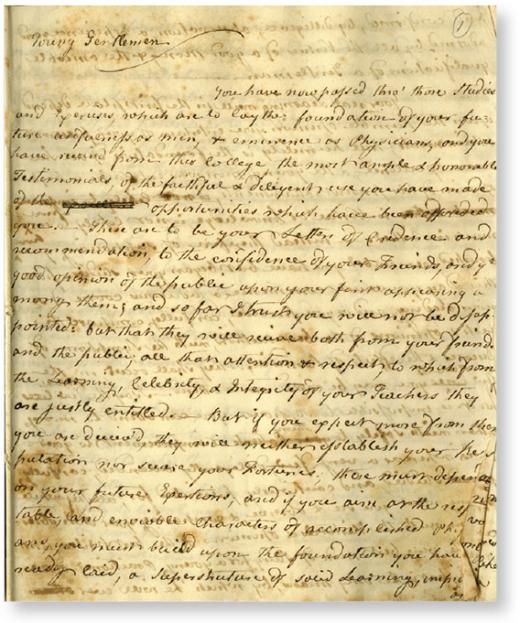 1
Young Gentlemen
You have now passed thro' those Studies
and Exercises, which are to lay the foundation of your fu-
ture usefulness as men, & eminence as Physicians, and you
have received from this College the most ample & honorable
Testimonials, of the faithful & diligent use you have made
of the opportunities which have been afforded
you. These are to be your Letters of Credence and
recommendation, to the confidence of your Friends, and ye
good opinion of the public upon your first appearing a
mongst them; and so far I trust you will not be disap-
pointed: but that they will receive both from your friends
and the public, all that attention & respect to which from
the Learning, Celebrity, & Integrity of your Teachers they
are justly entitled. But if you expect more from them
you are deceiv'd they will neither establish your Re-
putation nor secure your Fortunes. these must depend
on your future Exertions, and if you aim at the res
table and enviable Characters of accomplished Ph
ans, you must build upon the foundation you have
ready laid, a Superstructure of solid Learning,